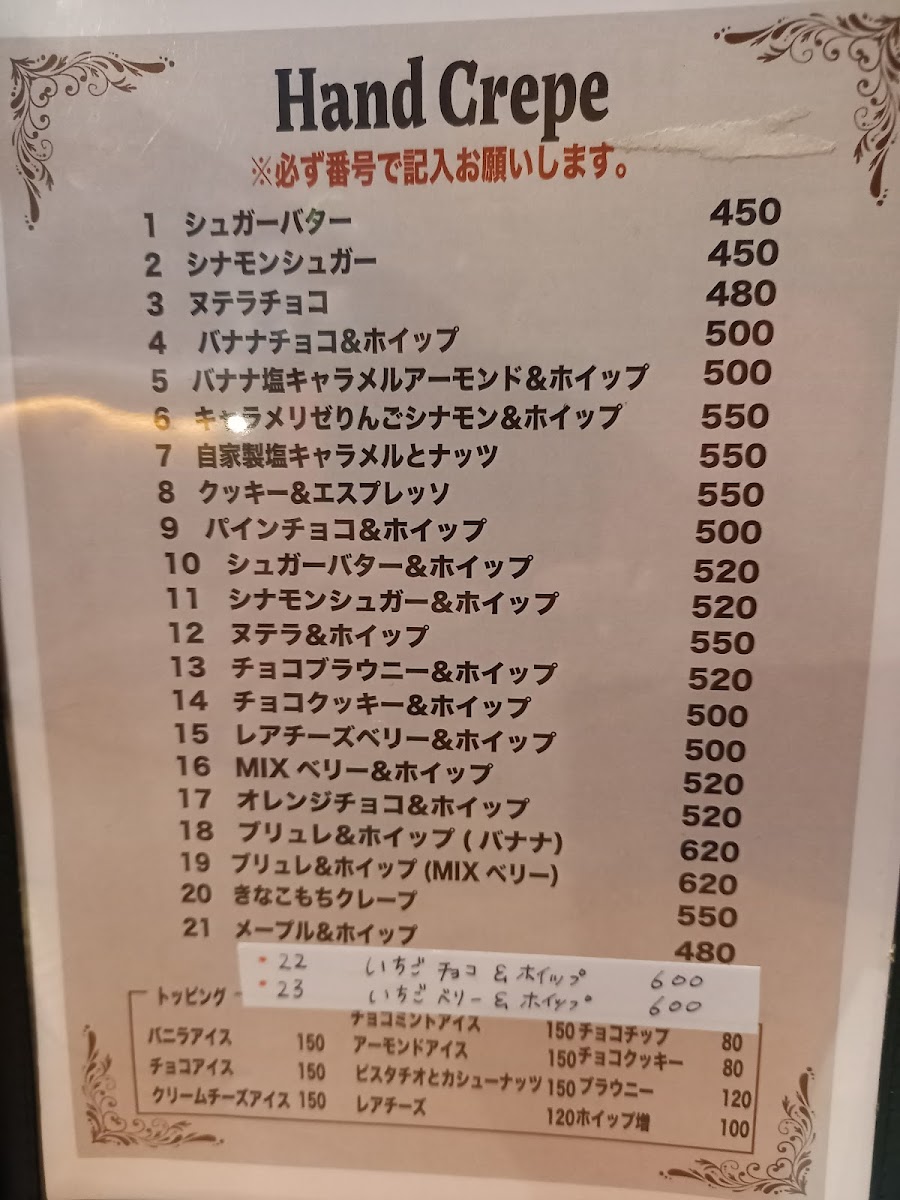 Hand Crepe
※必ず番号で記入お願いします。
1 シュガーバター 450
2 シナモンシュガー 450
3 ヌテラチョコ 480
4 バナナチョコ&ホイップ 500
5 バナナ塩キャラメルアーモンド&ホイップ 500
6 キャラメリゼりんごシナモン&ホイップ 550
7 自家製塩キャラメルとナッツ 550
8 クッキー&エスプレッソ 550
9 パインチョコ&ホイップ 500
10 シュガーバター&ホイップ 520
11 シナモンシュガー&ホイップ 520
12 ヌテラ&ホイップ 550
13 チョコブラウニー&ホイップ 520
14 チョコクッキー&ホイップ 500
15 レアチーズベリー&ホイップ 500
16 MIX ベリー&ホイップ 520
17 オレンジチョコ&ホイップ 520
18 ブリュレ&ホイップ ( バナナ) 620
19 ブリュレ&ホイップ (MIX ベリー) 620
20 きなこもちクレープ 550
21 メープル&ホイップ 480
22 いちご チョコ & ホイップ 600
23 いちご ベリー & ホイップ 600
トッピング
バニラアイス 150 チョコミントアイス 150 チョコチップ 80
チョコアイス 150 アーモンドアイス 150 チョコクッキー 80
クリームチーズアイス 150 ピスタチオとカシューナッツ 150 ブラウニー 120
レアチーズ 120 ホイップ増 100